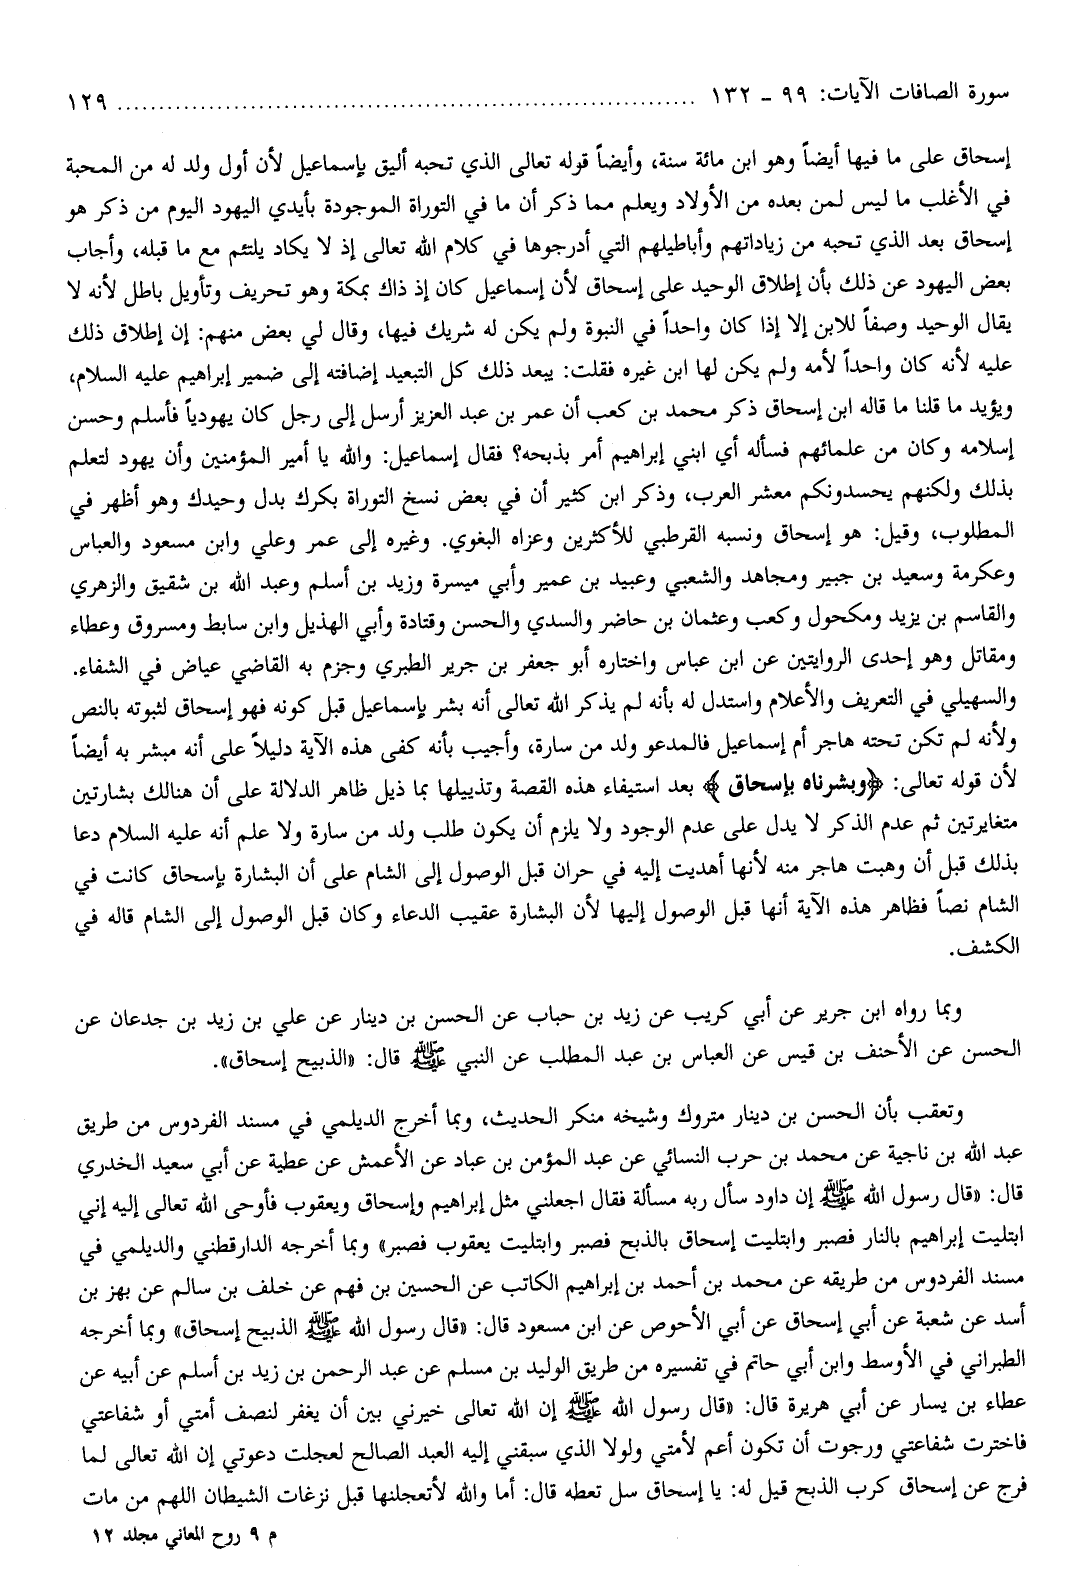 سورة الصافات الآيات: ٩٩ - ١٣٢ ........................................................ ١٢٩
إسحاق على ما فيها أيضاً وهو ابن مائة سنة، وأيضاً قوله تعالى الذي تحبه أليق بإسماعيل لأن أول ولد له من المحبة
في الأغلب ما ليس لمن بعده من الأولاد ويعلم مما ذكر أن ما في التوراة الموجودة بأيدي اليهود اليوم من ذكر هو
إسحاق بعد الذي تحبه من زياداتهم وأباطيلهم التي أدرجوها في كلام الله تعالى إذ لا يكاد يلتئم مع ما قبله، وأجاب
بعض اليهود عن ذلك بأن إطلاق الوحيد على إسحاق لأن إسماعيل كان إذ ذاك بمكة وهو تحريف وتأويل باطل لأنه لا
يقال الوحيد وصفاً للابن إلا إذا كان واحداً في النبوة ولم يكن له شريك فيها، وقال لي بعض منهم: إن إطلاق ذلك
عليه لأنه كان واحداً لأمه ولم يكن لها ابن غيره فقلت: يبعد ذلك كل التبعيد إضافته إلى ضمير إبراهيم عليه السلام،
ويؤيد ما قلنا ما قاله ابن إسحاق ذكر محمد بن كعب أن عمر بن عبد العزيز أرسل إلى رجل كان يهودياً فأسلم وحسن
إسلامه وكان من علمائهم فسأله أي ابني إبراهيم أمر بذبحه؟ فقال إسماعيل: والله يا أمير المؤمنين وأن يهود لتعلم
بذلك ولكنهم يحسدونكم معشر العرب، وذكر ابن كثير أن في بعض نسخ التوراة بكرك بدل وحيدك وهو أظهر في
المطلوب، وقيل: هو إسحاق ونسبه القرطبي للأكثرين وعزاه البغوي. وغيره إلى عمر وعلي وابن مسعود والعباس
وعكرمة وسعيد بن جبير ومجاهد والشعبي وعبيد بن عمير وأبي ميسرة وزيد بن أسلم وعبد الله بن شقيق والزهري
والقاسم بن يزيد ومكحول وكعب وعثمان بن حاضر والسدي والحسن وقتادة وأبي الهذيل وابن سابط ومسروق وعطاء
ومقاتل وهو إحدى الروايتين عن ابن عباس واختاره أبو جعفر بن جرير الطبري وجزم به القاضي عياض في الشفاء.
والسهيلي في التعريف والأعلام واستدل له بأنه لم يذكر الله تعالى أنه بشر بإسماعيل قبل كونه فهو إسحاق لثبوته بالنص
ولأنه لم تكن تحته هاجر أم إسماعيل فالمدعو ولد من سارة، وأجيب بأنه كفى هذه الآية دليلاً على أنه مبشر به أيضاً
لأن قوله تعالى: ﴿وبشرناه بإسحاق﴾ بعد استيفاء هذه القصة وتذييلها بما ذيل ظاهر الدلالة على أن هنالك بشارتين
متغايرتين ثم عدم الذكر لا يدل على عدم الوجود ولا يلزم أن يكون طلب ولد من سارة ولا علم أنه عليه السلام دعا
بذلك قبل أن وهبت هاجر منه لأنها أهديت إليه في حران قبل الوصول إلى الشام على أن البشارة بإسحاق كانت في
الشام نصاً فظاهر هذه الآية أنها قبل الوصول إليها لأن البشارة عقيب الدعاء وكان قبل الوصول إلى الشام قاله في
الكشف.
وبما رواه ابن جرير عن أبي كريب عن زيد بن حباب عن الحسن بن دينار عن علي بن زيد بن جدعان عن
الحسن عن الأحنف بن قيس عن العباس بن عبد المطلب عن النبي ﷺ قال: «الذبيح إسحاق».
وتعقب بأن الحسن بن دينار متروك وشيخه منكر الحديث، وبما أخرج الديلمي في مسند الفردوس من طريق
عبد الله بن ناجية عن محمد بن حرب النسائي عن عبد المؤمن بن عباد عن الأعمش عن عطية عن أبي سعيد الخدري
قال: «قال رسول الله ﷺ إن داود سأل ربه مسألة فقال اجعلني مثل إبراهيم وإسحاق ويعقوب فأوحى الله تعالى إليه إني
ابتليت إبراهيم بالنار فصبر وابتليت إسحاق بالذبح فصبر وابتليت يعقوب فصبر» وبما أخرجه الدارقطني والديلمي في
مسند الفردوس من طريقه عن محمد بن أحمد بن إبراهيم الكاتب عن الحسين بن فهم عن خلف بن سالم عن بهز بن
أسد عن شعبة عن أبي إسحاق عن أبي الأحوص عن ابن مسعود قال: «قال رسول الله ﷺ الذبيح إسحاق» وبما أخرجه
الطبراني في الأوسط وابن أبي حاتم في تفسيره من طريق الوليد بن مسلم عن عبد الرحمن بن زيد بن أسلم عن أبيه عن
عطاء بن يسار عن أبي هريرة قال: «قال رسول الله ﷺ إن الله تعالى خيرني بين أن يغفر لنصف أمتي أو شفاعتي
فاخترت شفاعتي ورجوت أن تكون أعم لأمتي ولولا الذي سبقني إليه العبد الصالح لعجلت دعوتي إن الله تعالى لما
فرج عن إسحاق كرب الذبح قيل له: يا إسحاق سل تعطه قال: أما والله لأتعجلنها قبل نزغات الشيطان اللهم من مات
م ٩ روح المعاني مجلد ١٢